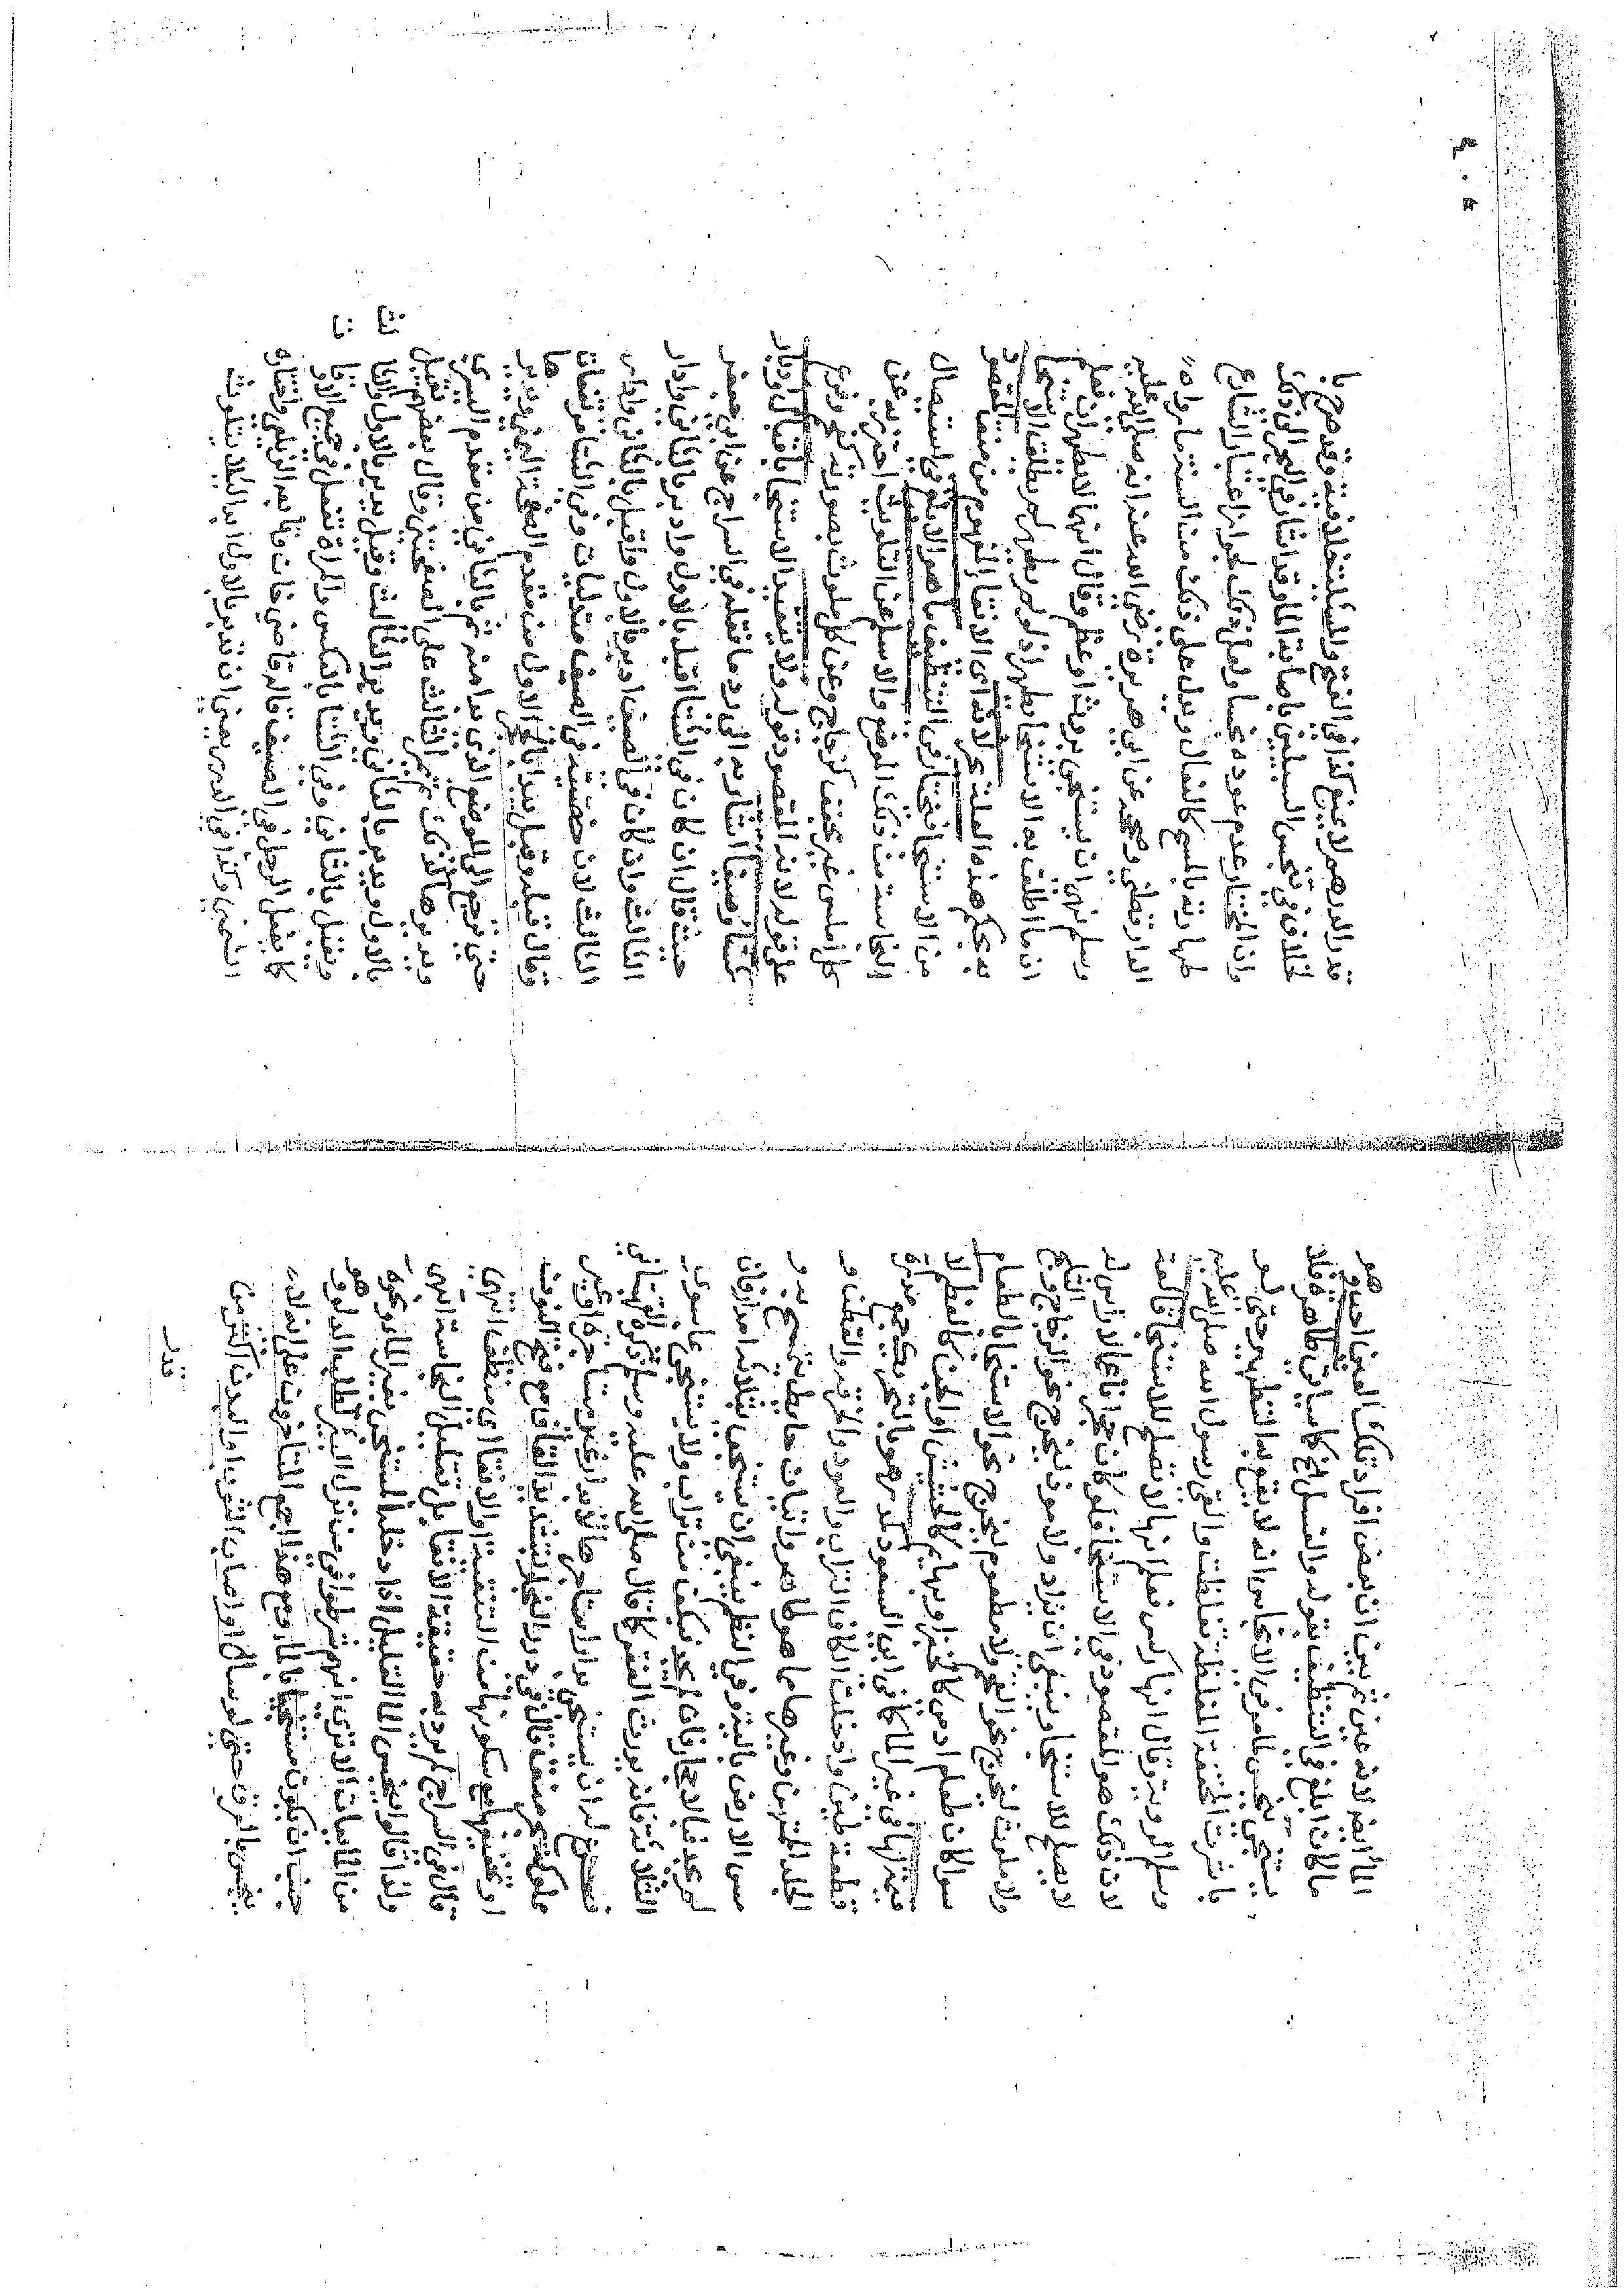 الماء ايضا لانه عين ثم تبين ان بعض افراد تلك العين احد وهو
ما كان ابلغ في التنظيف بقوله والغسل الخ كما سياتي طاهرة فلا
يستنجى بنجس للامر في الانجاس انه لا يقع به التطهير حتى لو
باشرت المخففة المغلظة تغلظت والقى رسول الله صلى الله عليه
وسلم الروثة وقال انها ركس فعلم انها لا تصلح للاستنجا قالعة
لان ذلك هو المقصود في الاستنجا فلو كان حجرا ناعما
لا يصلح للاستنجا وينبغي ان يزاد ولا ليخرج نحو الزجاج والثلج
ولا ملوث ليخرج نحو الفحم ولا مطعوم ليخرج نحو الاستنجا بالطعام
سوا كان طعام ادمى كالخبز او بهايم كالحشيش او الجن كالعظم لا
قيمة لها في غير الما كما في ابي السعود كمدر هو بالتحريك جمع مدرة
قطعة طين وادخلت الكاف التراب والعود والخرقة والقطن و
الجلد الممتهن وغيرها مما هو طاهر واتيان حايط يتمسح به و
مس الارض باليد وفي النظم ينبغي ان يستنجى بثلاثة امدار فان
لم يجد فبالاحجار فان لم يجد فبكف من تراب ولا يستنجى بما سوى
الثلاثة فانه يورث الفقر كما قال صلى الله عليه وسلم ذكره القهستاني
له ان يستنجى بدار استاجرها لا بدار غيره
منق قال في درر بتشديد القاف مع فتح النون
او تخفيفها مع سكونها من التنقية او الانقا اى منظف انتهى
قال في السراج لم يرد به حقيقة الانقا بل تقليل النجاسة انتهى
ولذا قالوا يتنجس الما القليل اذا دخله المستنجى بغير الما وكونه
من المايعات الا ترى انهم شرطوا في من نزل البير لطلب الدلو وهو
جنب ان يكون مستنجيا بالما ومع هذا اجمع المتاخرون على انه لا
ينجس بالعرق حتى لو سال او اصاب الثوب او البدن اكثر من
قدر
قدر الدرهم لا يمنع كذا في الفتح والمسئلة خلافية وقد صرح با
لخلاف في تنجس السبيلين باصابة الما وقد اشار في البحر الى ذلك
وان المختار عدم عوده نجسا ولعل ذلك لجواز اعتبار الشارع
طهارته بالمسح كالنعال ويدل على ذلك من السنة ما رواه
الدارقطني وصححه عن ابي هريرة رضي الله عنه انه صلى الله عليه
وسلم نهى ان يستنجى بروث او عظم وقال انهما لا يطهران فعلم
ان ما اطلق به الاستنجا يطهر اذ لو لم يطهر لم يطلق الاستنجا
به بحكم هذه العلة بحر لانه اى الانقا المفهوم من منق المقصود
من الاستنجا فيختار في التنظيف ما هو الابلغ في استيصال
النجاسة من ذلك الموضع والاسلم عن التلويث احترز به عن
كل املس غير مجفف كزجاج وعن كل ملوث بصورته كفحم وفرع
على قوله لانه المقصود قوله ولا يتقيد الاستنجا باقبال او ادبار
شتا وصيفا اشار به الى رد ما نقله في السراج عن ابي جعفر
حيث قال ان كان في الشتا اقبل بالاول وادبر بالثاني وادار
الثالث وان كان في الصيف ادبر بالاول واقبل بالثاني وادار
الثالث لان خصيتيه في الصيف متدليات وفي الشتا مرتفعات
وقال فيبدا بالاول من مقدم الصفحة اليمنى ويديرها
حتى يرجع الى الموضع الذى بدا منه ثم بالثاني من مقدم اليسرى
ويديرها كذلك ثم يمر الثالث على الصفحتين وقال بعضهم يقبل
بالاول ويدبر بالثاني ويدير الثالث وقيل يدبر بالاول
ويقبل بالثاني وفي الشتا بالعكس والمراة تفعل في جميع الاوقات
كما يفعل الرجل في الصيف قاله قاضي خان وتابعه الزيلعي واختاره
الحصني وكذا في الدرر يعني ان تدبر بالاول ابدا ليلا يتلوث